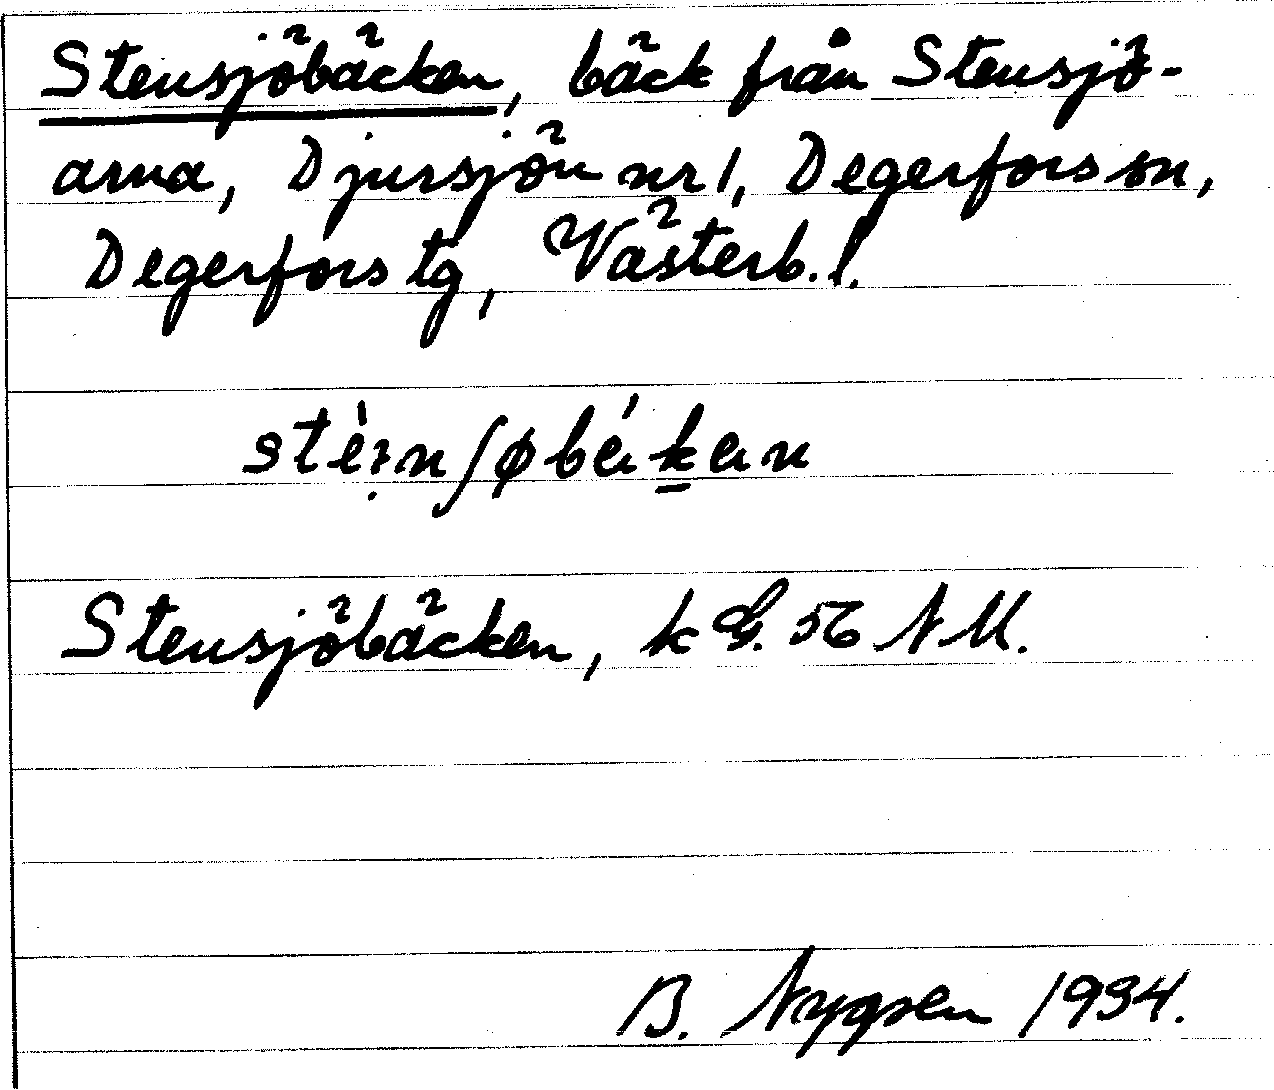 Stensjöbäcken, bäck från Stensjö-
arna, Djursjön nr 1, Degerfors sn,
Degerfors tg, Västerb. l.
Stensjöbäcken, k G. 56 NM.
B. 1934.